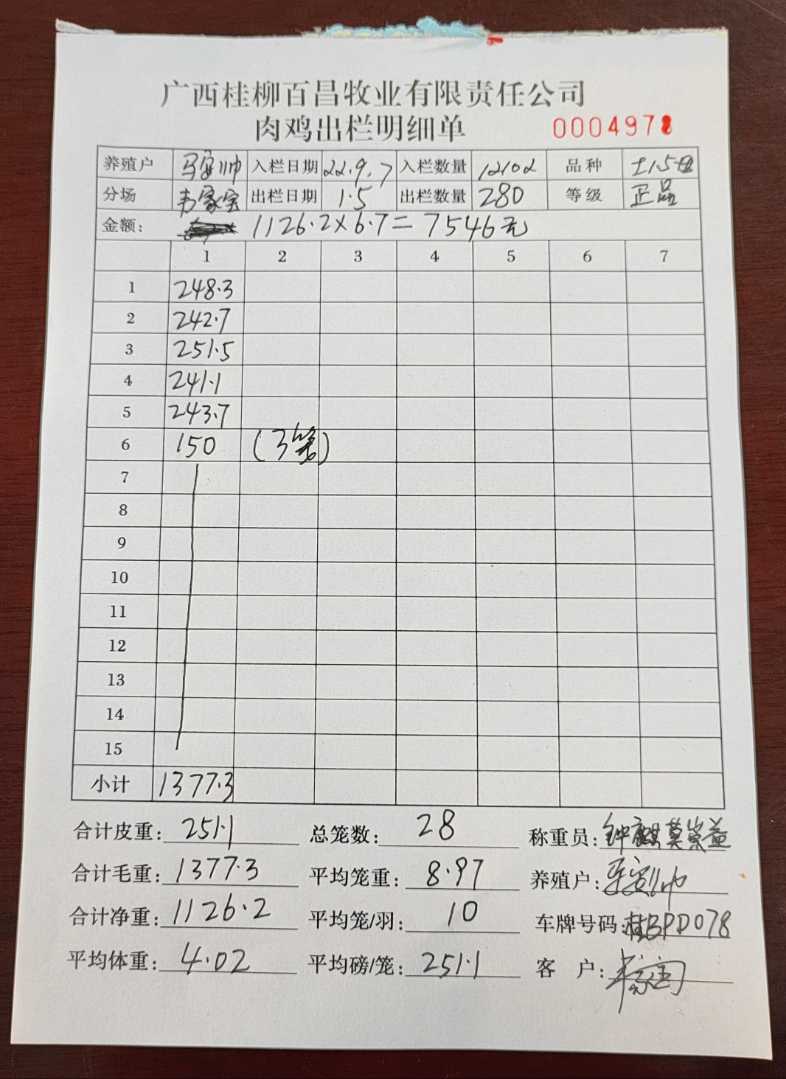 广西桂柳百昌牧业有限责任公司
肉鸡出栏明细单 0004978
养殖户 入栏日期 22.9.7 入栏数量 12102 品种
分场 韦家宝 出栏日期 1.5 出栏数量 280 等级 正品
金额: 1126.2×6.7=7546元
1 2 3 4 5 6 7
1 248.3
2 242.7
3 251.5
4 241.1
5 243.7
6 150 (3笼)
7
8
9
10
11
12
13
14
15
小计 1377.3
合计皮重: 251.1 总笼数: 28 称重员:
合计毛重: 1377.3 平均笼重: 8.97 养殖户:
合计净重: 1126.2 平均笼/羽: 10 车牌号码: 桂BPD078
平均体重: 4.02 平均磅/笼: 251.1 客 户: